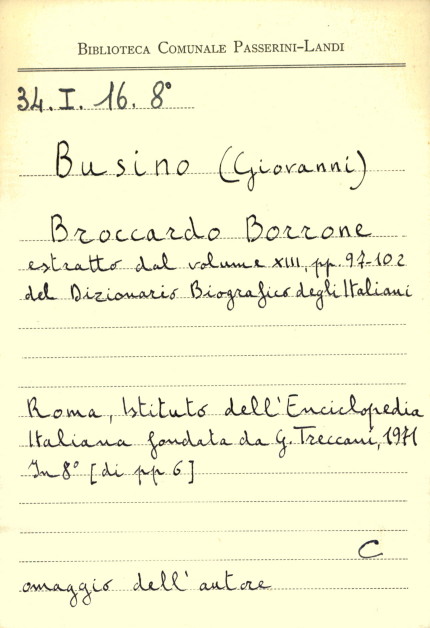 BIBLIOTECA COMUNALE PASSERINI-LANDI
34. I. 16. 8°
Busino (Giovanni)
Broccardo Borrone
estratto dal volume XIII, pp. 97-102
del Dizionario Biografico degli Italiani
Roma, Istituto dell'Enciclopedia
Italiana fondata da G. Treccani, 1971
In 8° [di pp 6]
C
omaggio dell'autore